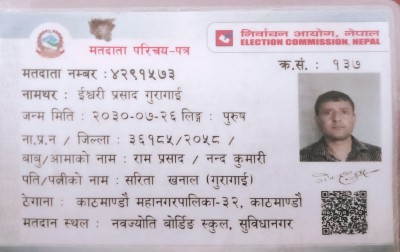 निर्वाचन आयोग, नेपाल
ELECTION COMMISSION, NEPAL
मतदाता परिचय-पत्र
क्र.सं. : १३७
मतदाता नम्बर : ४२९१५७३
नामथर : ईश्वरी प्रसाद गुरागाई
जन्म मिति : २०३०-०७-२६ लिङ्ग : पुरुष
ना.प्र.न / जिल्ला : ३६१८५/२०५८ /
बाबु/आमाको नाम : राम प्रसाद / नन्द कुमारी
पति/पत्नीको नाम : सरिता खनाल (गुरागाई)
ठेगाना : काठमाण्डौ महानगरपालिका-३२, काठमाण्डौ
मतदान स्थल : नवज्योति बोर्डिङ स्कुल, सुविधानगर